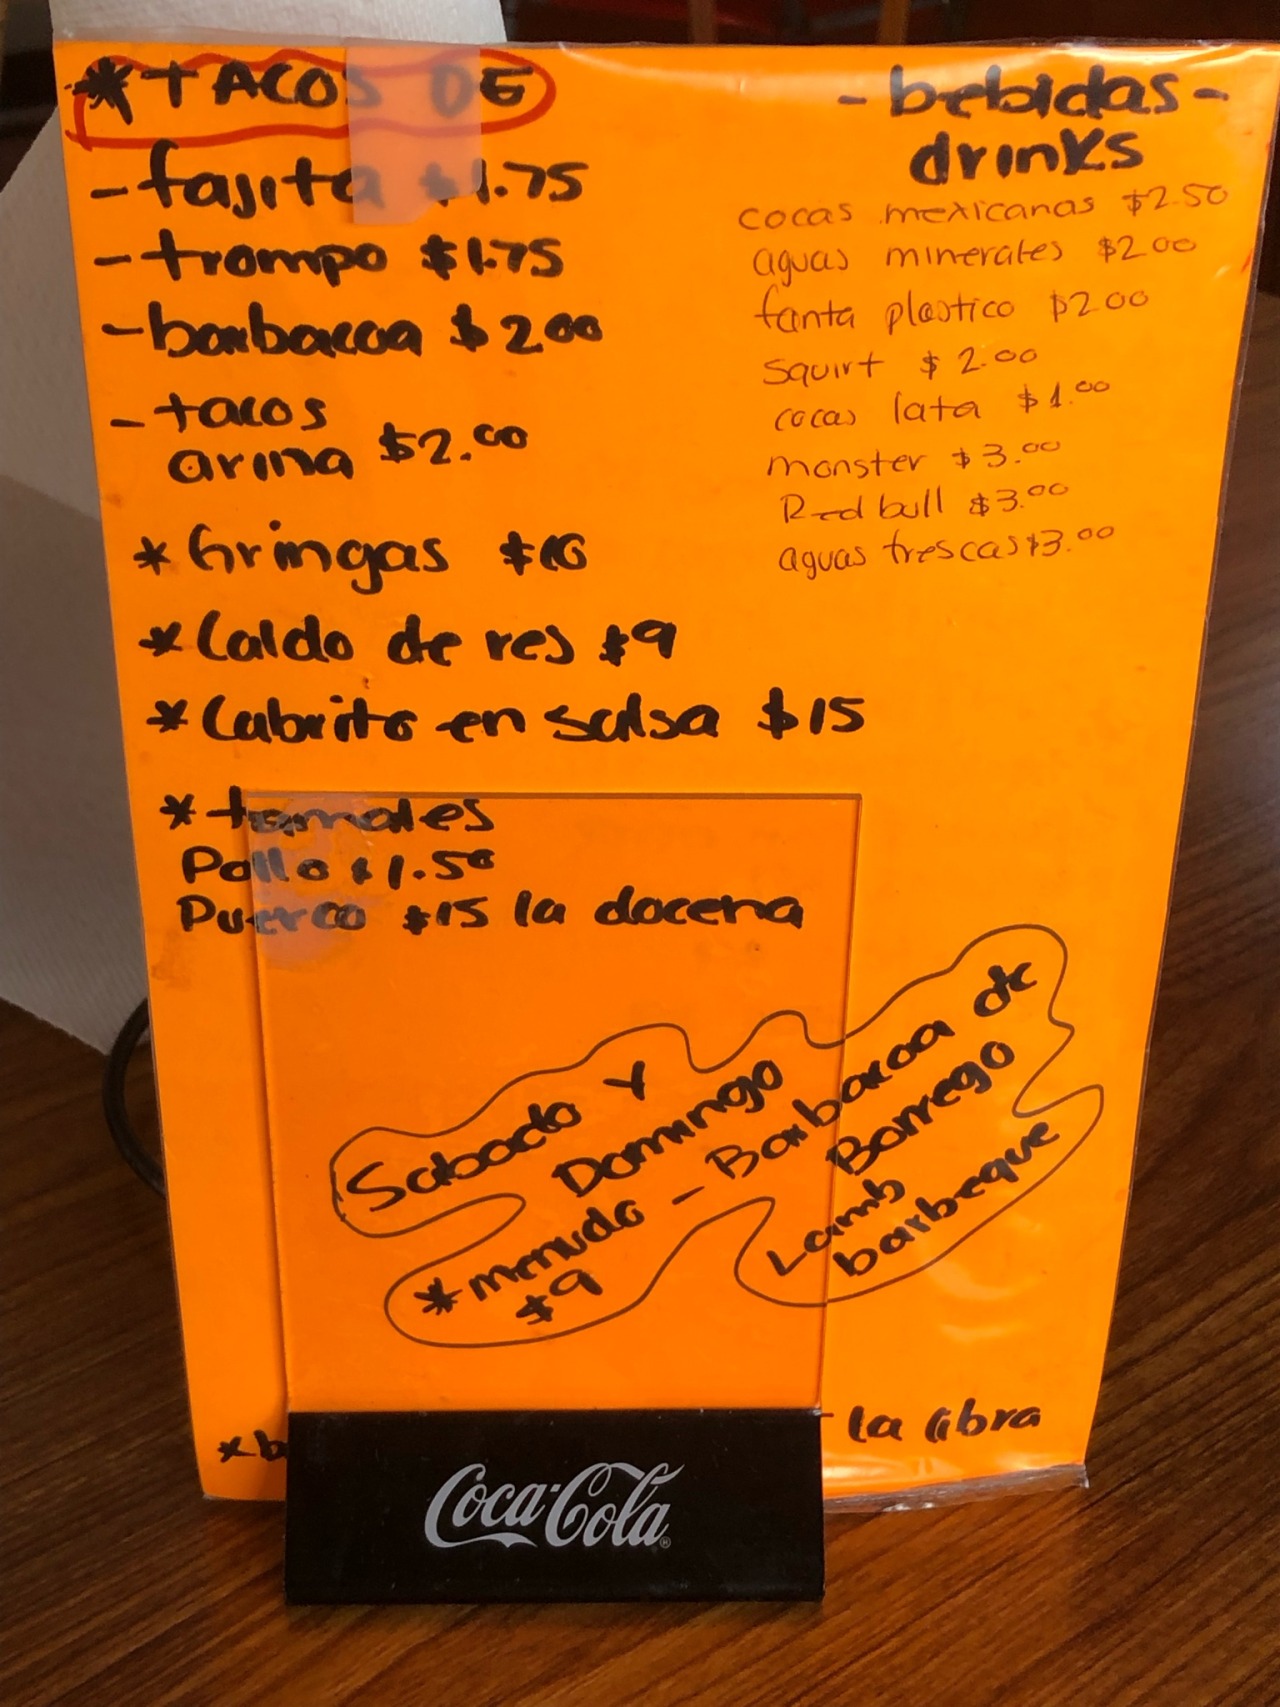 *TACOS DE
- fajita $1.75
- trompo $1.75
- barbacoa $2.00
- tacos
arina $2.00
*Gringas $10
*Caldo de res $9
*Cabrito en salsa $15
*tamales
Pollo $1.50
Puerco $15 la docena
- bebidas -
drinks
cocas mexicanas $2.50
aguas minerales $2.00
fanta plastico $2.00
squirt $2.00
cocas lata $1.00
monster $3.00
Red bull $3.00
aguas frescas $3.00
Sabado y
Domingo
*menudo - Barbacoa de
$9
Borrego
Lamb
barbeque
la libra
Coca-Cola